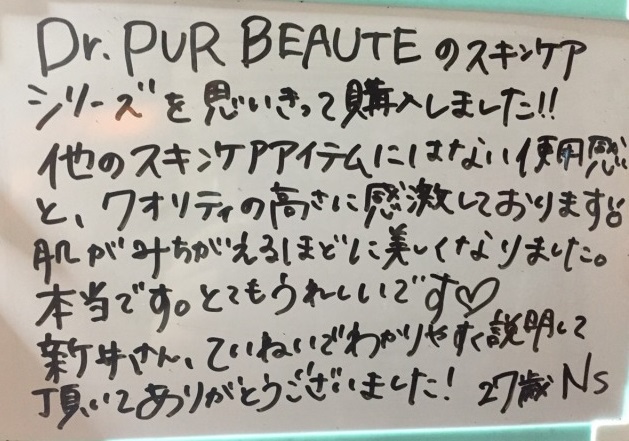 Dr. PUR BEAUTEのスキンケア
シリーズを思いきって購入しました!!
他のスキンケアアイテムにはない使用感
と、クオリティの高さに感激しております!!
肌がみちがえるほどに美しくなりました。
本当です。とてもうれしいです♡
新井さん、ていねいでわかりやすく説明して
頂いてありがとうございました! 27歳 Ns